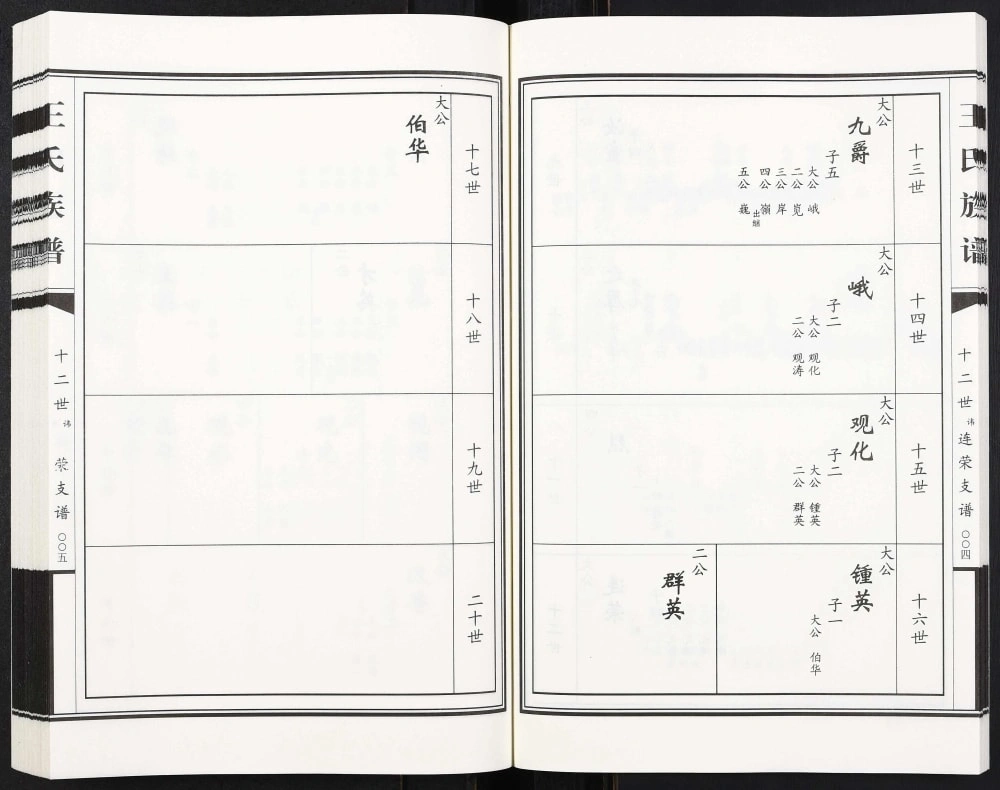 王氏族谱
十二世 讳 连荣支谱 〇〇四
十三世
大公
九爵
子五
大公 峨
二公 觅
三公 岸
四公 嶺 出继
五公 巍
十四世
大公
峨
子二
大公 观化
二公 观涛
十五世
大公
观化
子二
大公 锺英
二公 群英
十六世
大公
锺英
子一
大公 伯华
二公
群英
十七世
大公
伯华
十八世
十九世
二十世
王氏族谱
十二世 讳 荣支谱 〇〇五